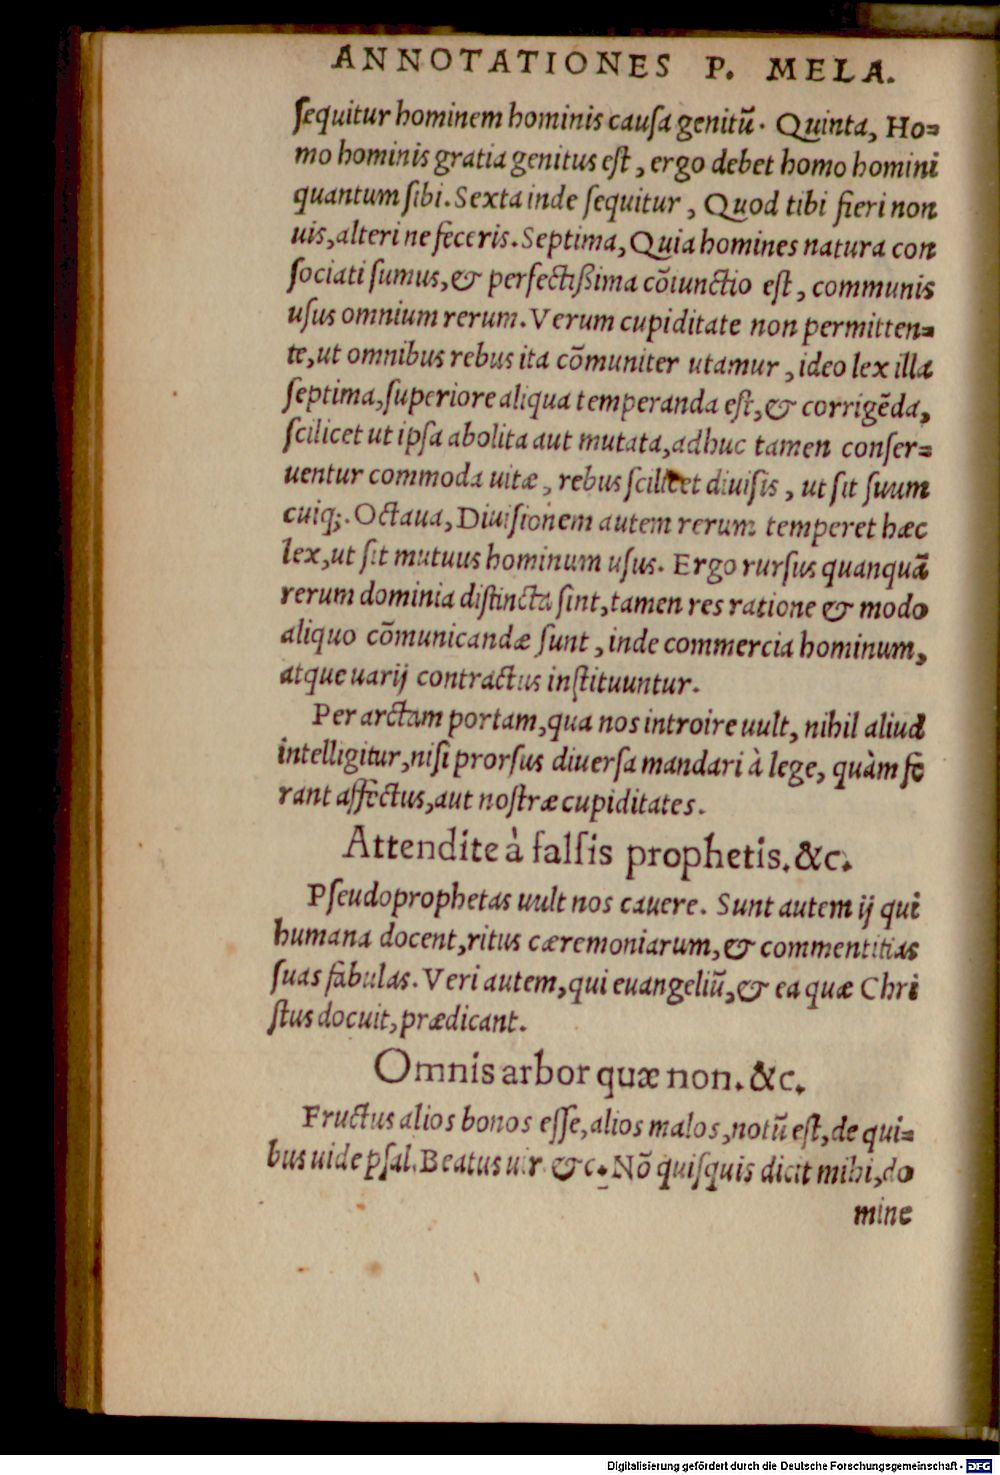 ANNOTATIONES P. MELA.
ſequitur hominem hominis cauſa genitū. Quinta, Ho=
mo hominis gratia genitus eſt, ergo debet homo homini
quantum ſibi. Sexta inde ſequitur, Quod tibi fieri non
uis, alteri ne feceris. Septima, Quia homines natura con
ſociati ſumus, & perfectißima cōiunctio eſt, communis
uſus omnium rerum. Verum cupiditate non permitten=
te, ut omnibus rebus ita cōmuniter utamur, ideo lex illa
ſeptima, ſuperiore aliqua temperanda eſt, & corrigēda,
ſcilicet ut ipſa abolita aut mutata, adhuc tamen conſer=
uentur commoda uitæ, rebus ſcilicet diuiſis, ut ſit ſuum
cuiq;. Octaua, Diuiſionem autem rerum temperet hæc
lex, ut ſit mutuus hominum uſus. Ergo rurſus quanquā
rerum dominia diſtincta ſint, tamen res ratione & modo
aliquo cōmunicandæ ſunt, inde commercia hominum,
atque uarij contractus inſtituuntur.
Per arctam portam, qua nos introire uult, nihil aliud
intelligitur, niſi prorſus diuerſa mandari à lege, quàm fe
rant affectus, aut noſtræ cupiditates.
Attendite à falſis prophetis. &c.
Pſeudoprophetas uult nos cauere. Sunt autem ij qui
humana docent, ritus cæremoniarum, & commentitias
ſuas fabulas. Veri autem, qui euangeliū, & ea quæ Chri
ſtus docuit, prædicant.
Omnis arbor quæ non. &c.
Fructus alios bonos eſſe, alios malos, notū eſt, de qui=
bus uide pſal. Beatus uir &c. Nō quiſquis dicit mihi, do
mine
Digitalisierung gefördert durch die Deutsche Forschungsgemeinschaft - DFG